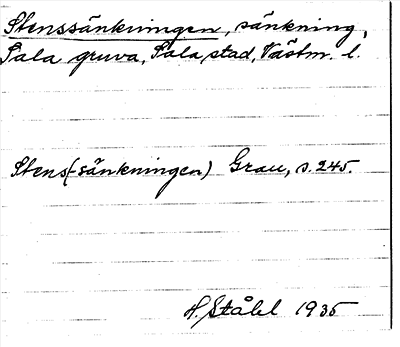 Stenssänkningen, sänkning,
Sala gruva, Sala stad, Västm. l.
Stens(-sänkningen) Grau, s. 245.
H. Ståhl 1935